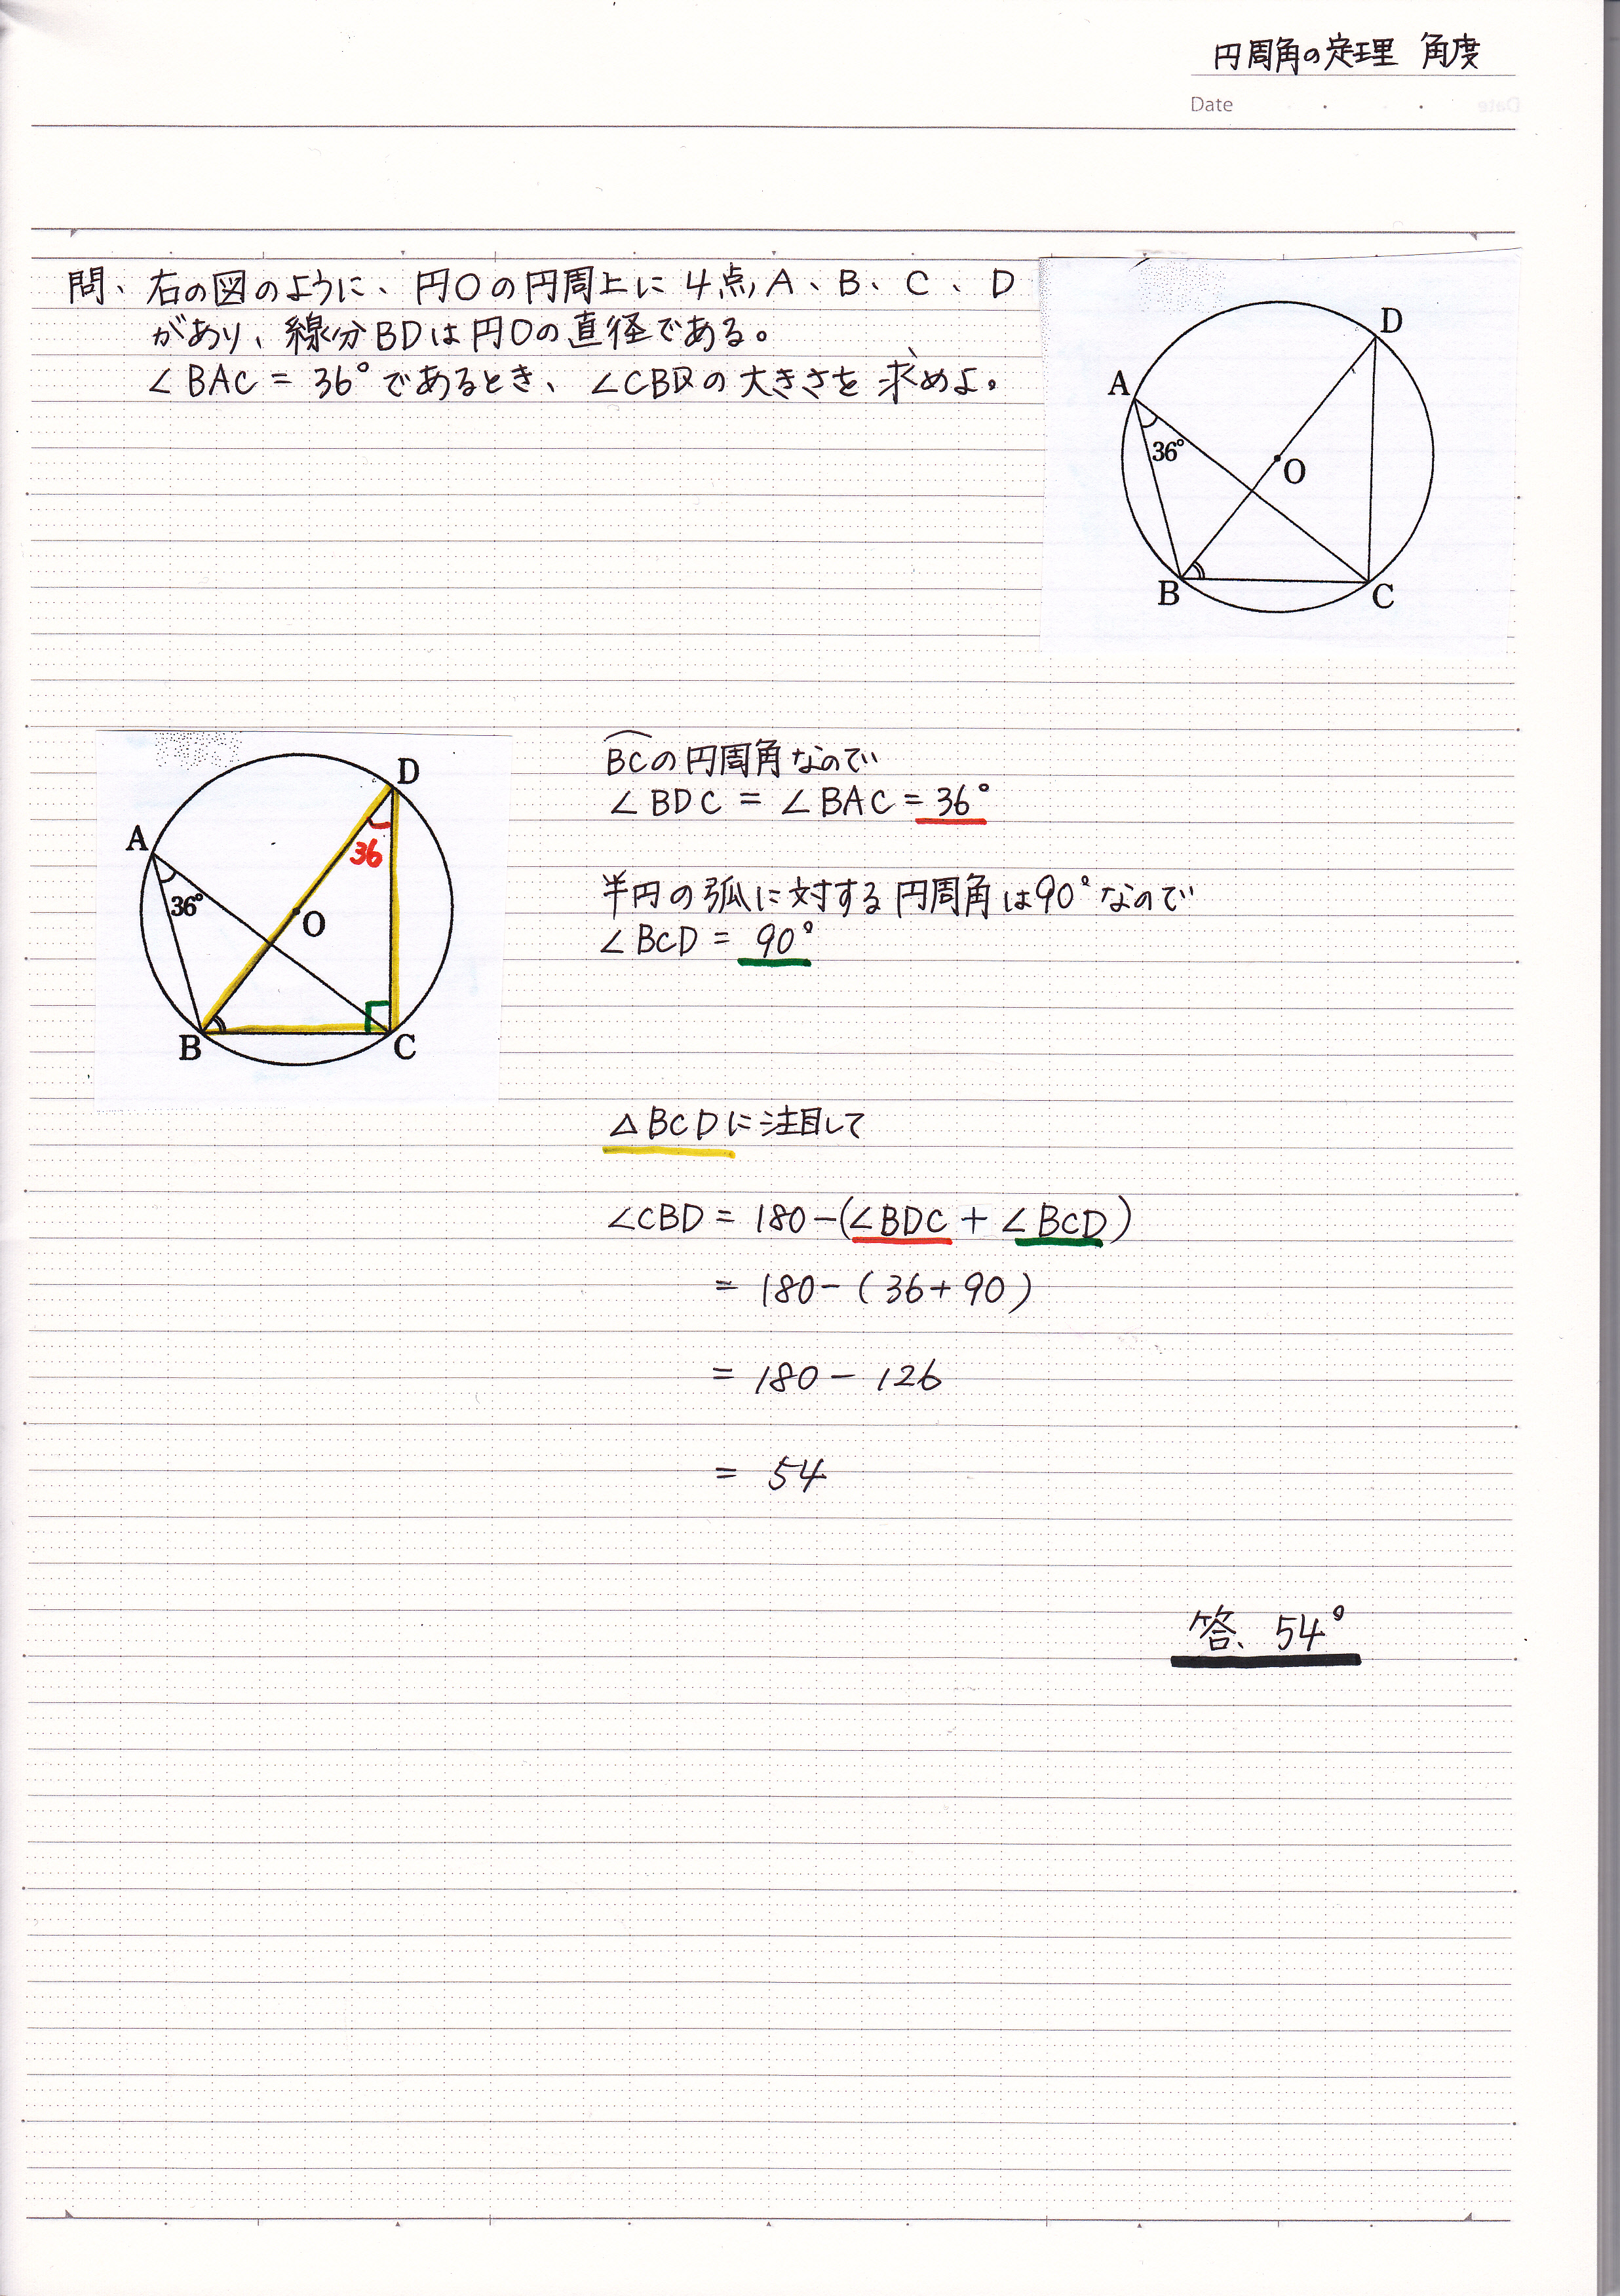 円周角の定理 角度
Date
問、右の図のように、円Oの円周上に4点A、B、C、D
があり、線分BDは円Oの直径である。
∠BAC = 36°であるとき、∠CBDの大きさを求めよ。
D
A
36°
O
B
C
D
A
36
36°
O
B
C
BCの円周角なので
∠BDC = ∠BAC = 36°
半円の弧に対する円周角は90°なので
∠BCD = 90°
△BCDに注目して
∠CBD = 180-(∠BDC + ∠BCD)
= 180-(36+90)
= 180-126
= 54
答、54°